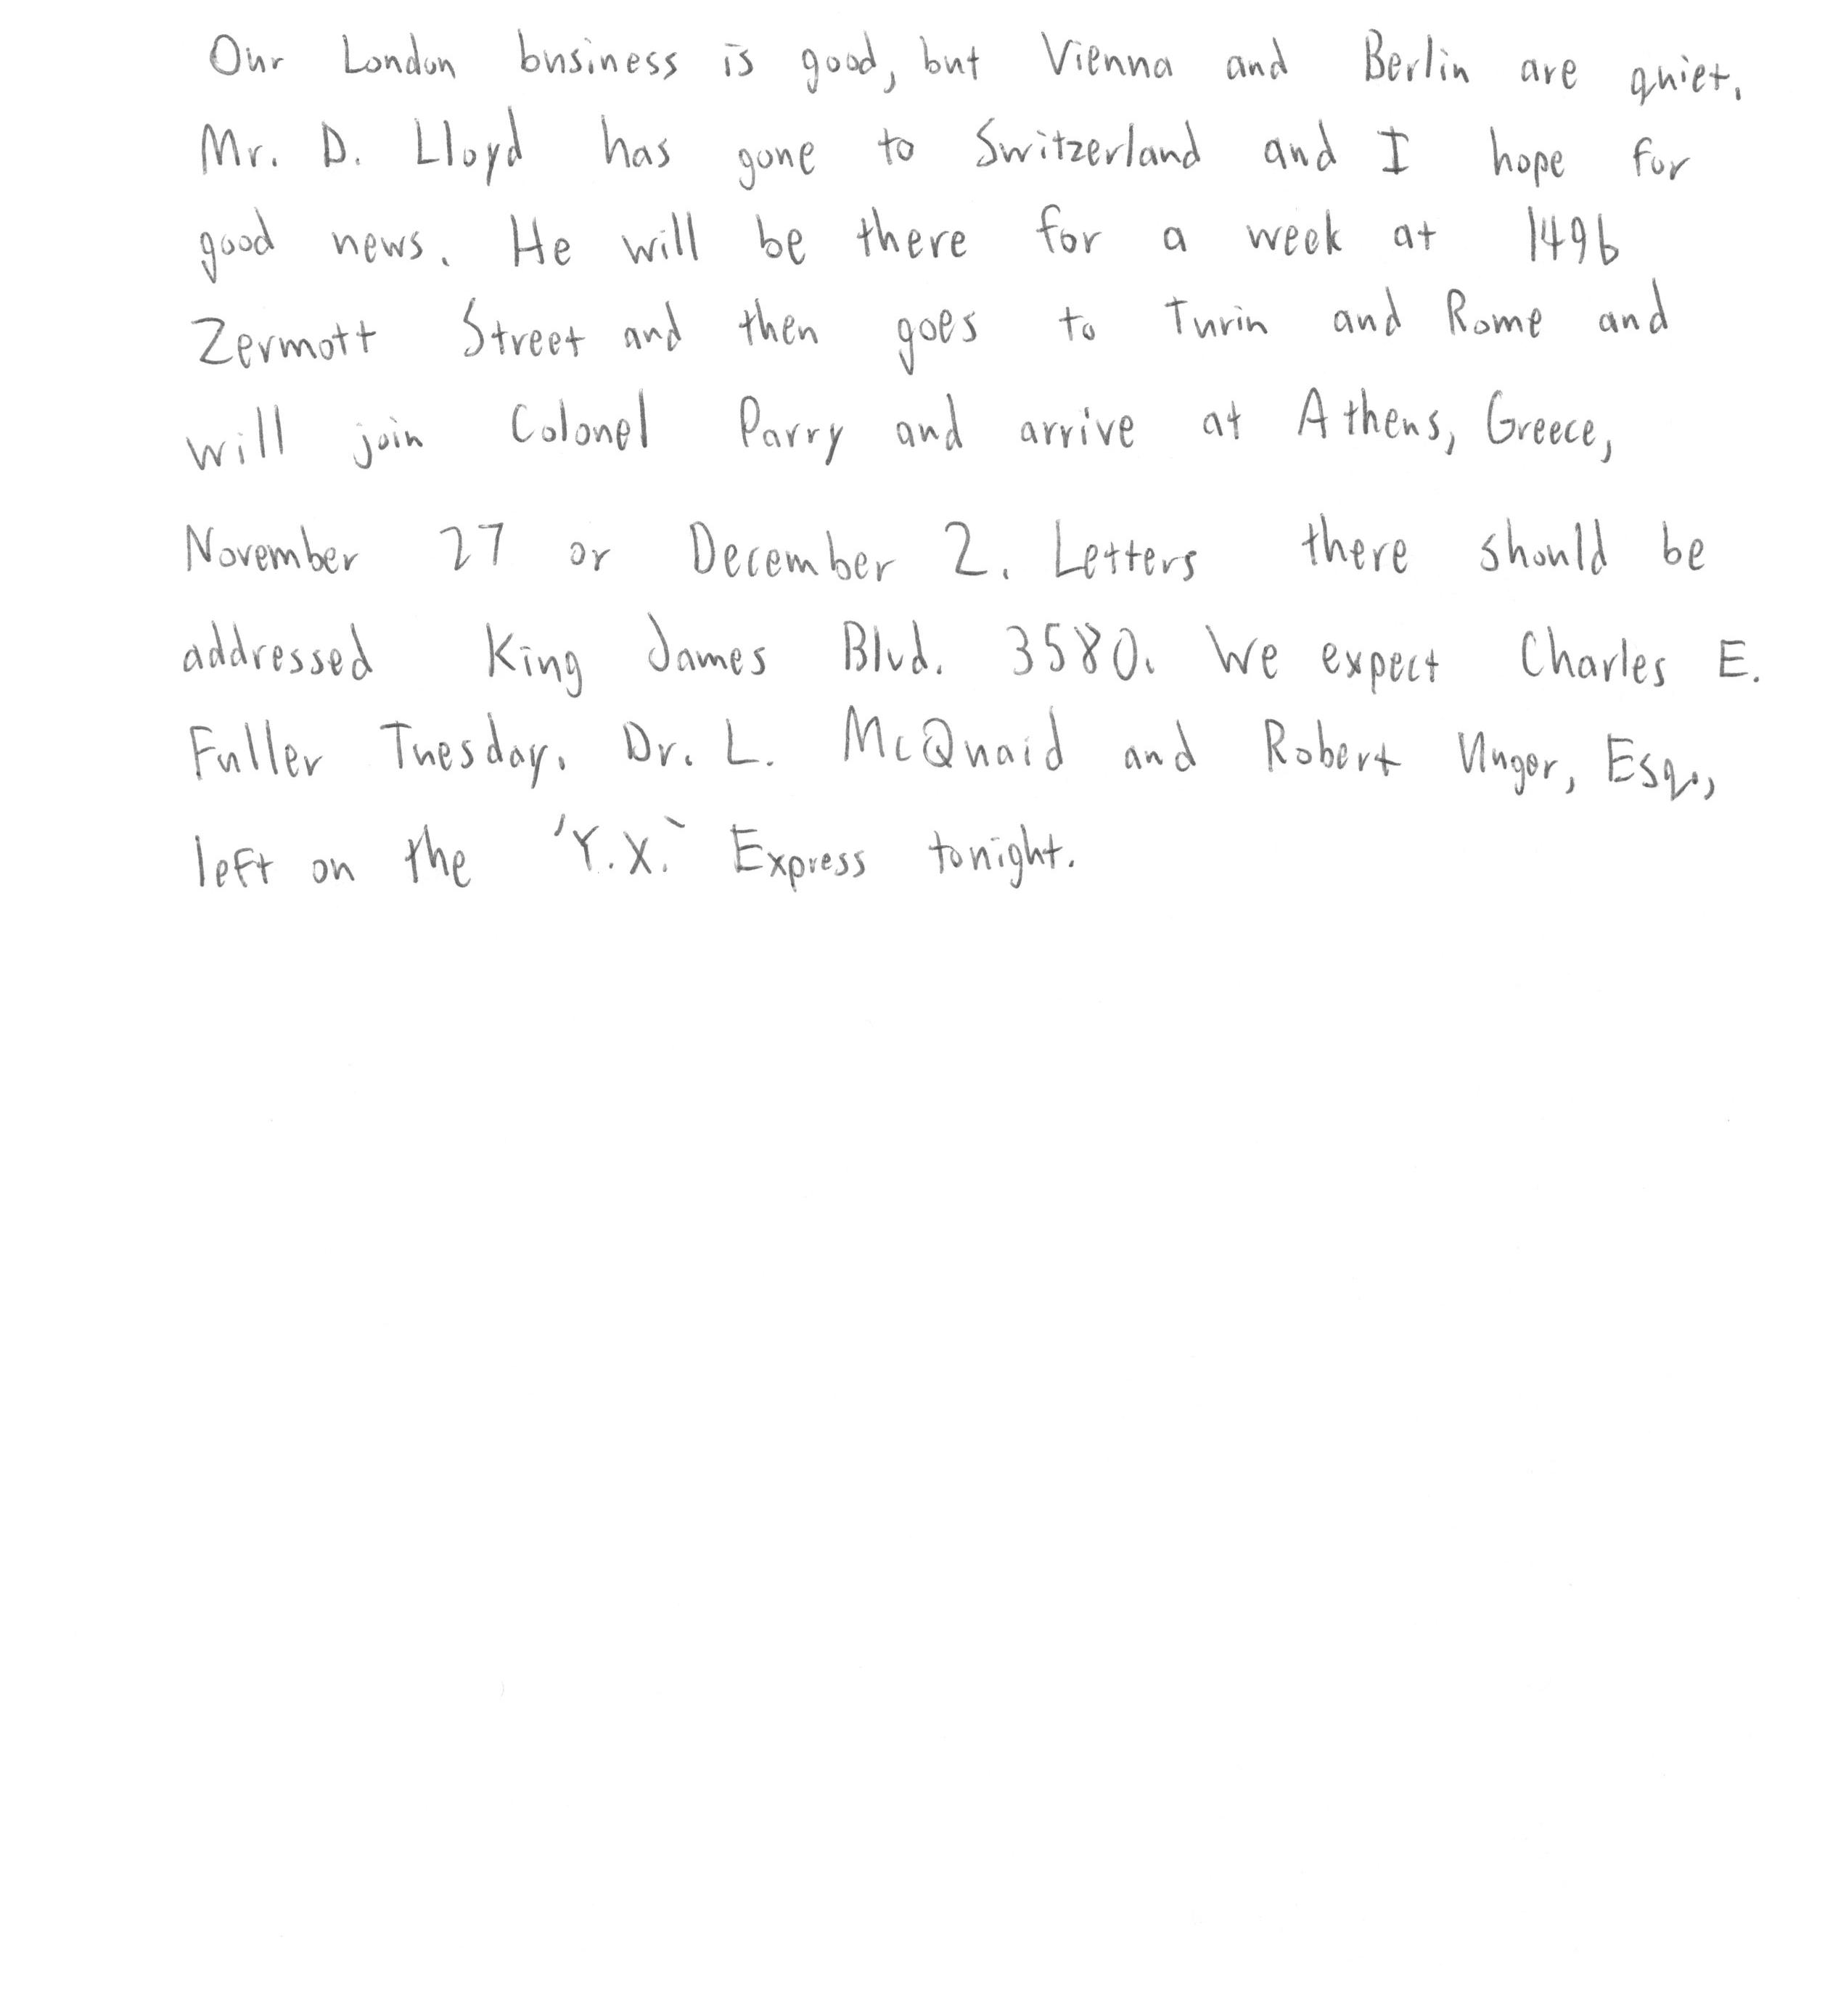 Our London business is good, but Vienna and Berlin are quiet.
Mr. D. Lloyd has gone to Switzerland and I hope for
good news. He will be there for a week at 1496
Zermott Street and then goes to Turin and Rome and
will join Colonel Parry and arrive at Athens, Greece,
November 27 or December 2. Letters there should be
addressed King James Blvd. 3580. We expect Charles E.
Fuller Tuesday. Dr. L. McQuaid and Robert Unger, Esq.,
left on the 'Y.X.' Express tonight.